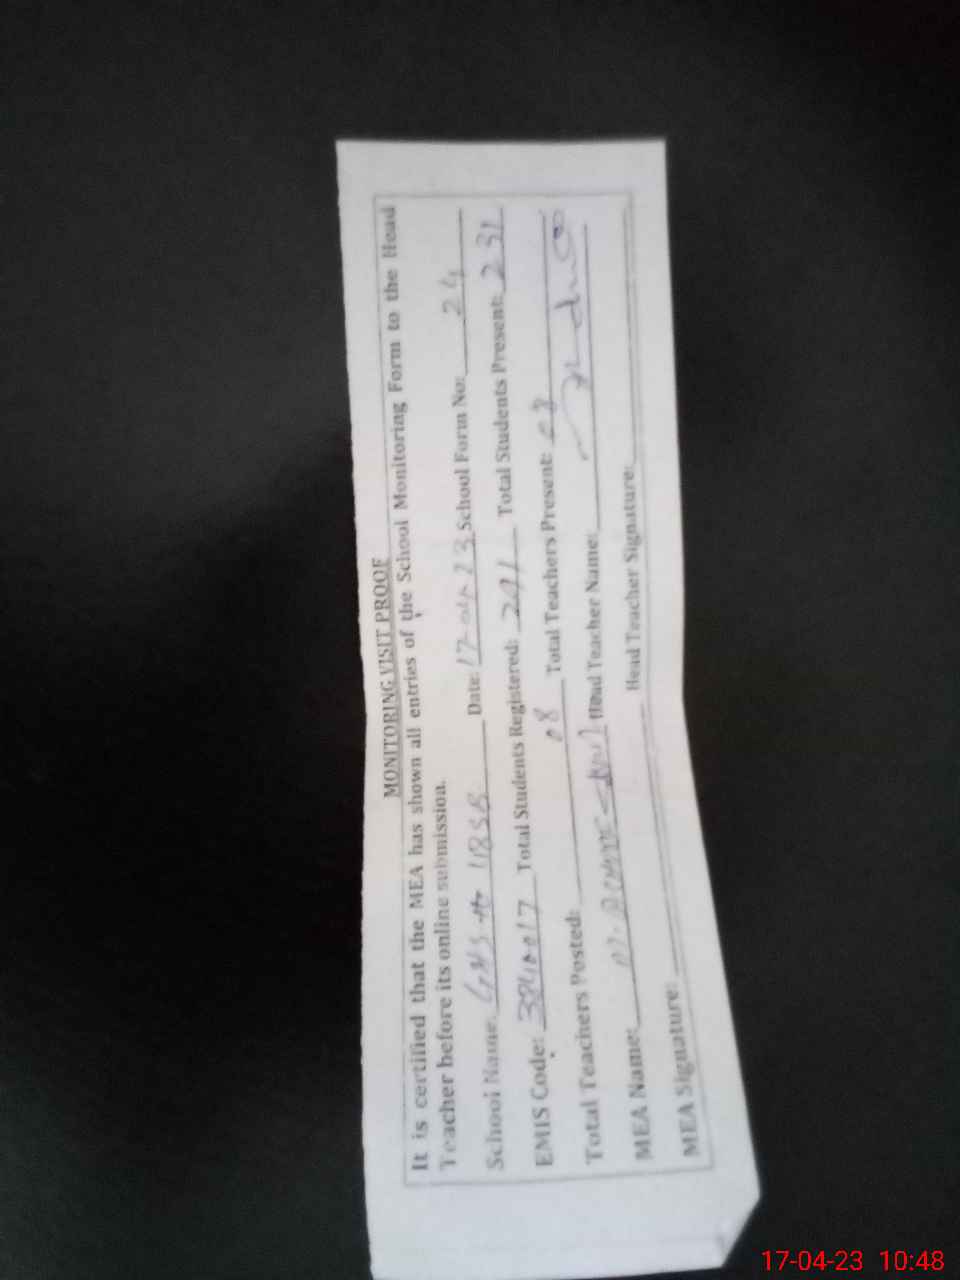 MONITORING VISIT PROOF
It is certified that the MEA has shown all entries of the School Monitoring Form to the Head
Teacher before its online submission.
School Name: 118SB Date: 17-04-23 School Form No: 24
EMIS Code: 38410017 Total Students Registered: 241 Total Students Present: 231
Total Teachers Posted: 08 Total Teachers Present: 08
MEA Name: Head Teacher Name:
MEA Signature: Head Teacher Signature:
17-04-23 10:48